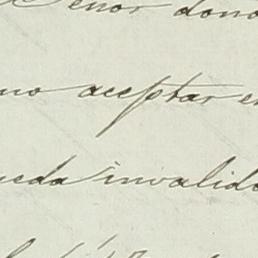 Señor dono
no aceptar e
ueda invalida